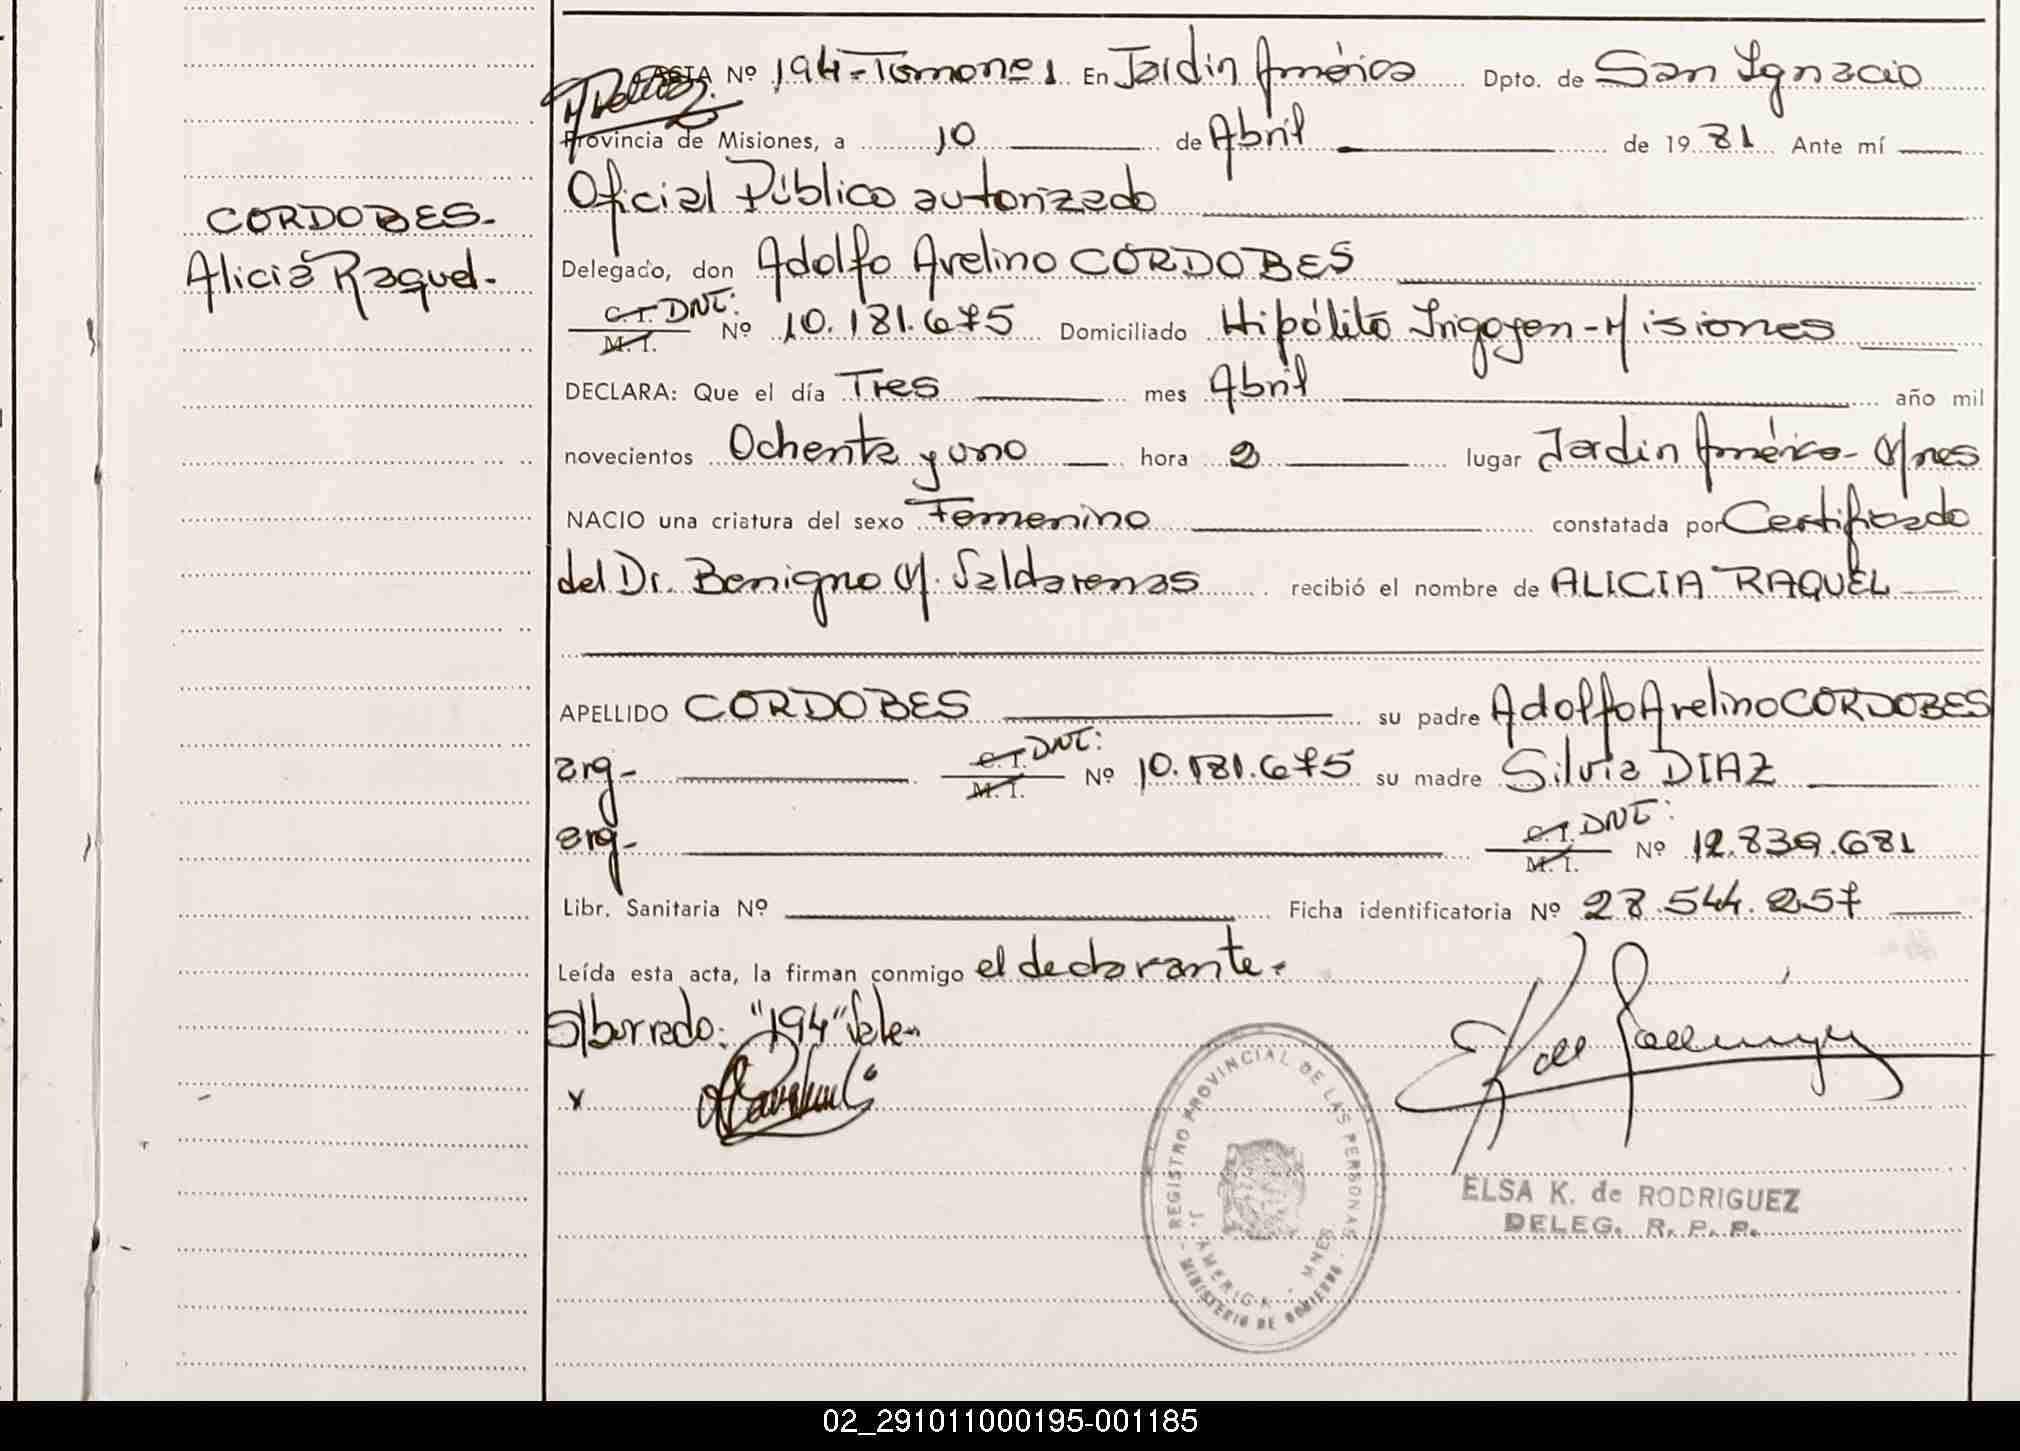 CORDOBES-
Alicia Raquel.
ACTA Nº 194-Tomo nº 1 En Jardín América Dpto. de San Ignacio
Provincia de Misiones, a 10 de Abril de 1981 Ante mí
Oficial Público autorizado
Delegado, don Adolfo Avelino CORDOBES
C.I. DNI:
M. I. Nº 10.181.675 Domiciliado Hipólito Irigoyen-Misiones
DECLARA: Que el día Tres mes Abril año mil
novecientos Ochenta y uno hora 2 lugar Jardín América- Mnes
NACIO una criatura del sexo Femenino constatada por Certificado
del Dr. Benigno M. recibió el nombre de ALICIA RAQUEL
APELLIDO CORDOBES su padre Adolfo Avelino CORDOBES
arg- C.I. DNI: M. I. Nº 10.181.675 su madre Silvia DIAZ
arg- C.I. DNI: M. I. Nº 12.839.681
Libr. Sanitaria Nº Ficha identificatoria Nº 28.544.257
Leída esta acta, la firman conmigo el declarante.
S/borrado: "194" Vale-
x
REGISTRO PROVINCIAL DE LAS PERSONAS
J. AMERICA - MNES
MINISTERIO DE GOBIERNO
ELSA K. de RODRIGUEZ
DELEG. R. P. P.
02_291011000195-001185